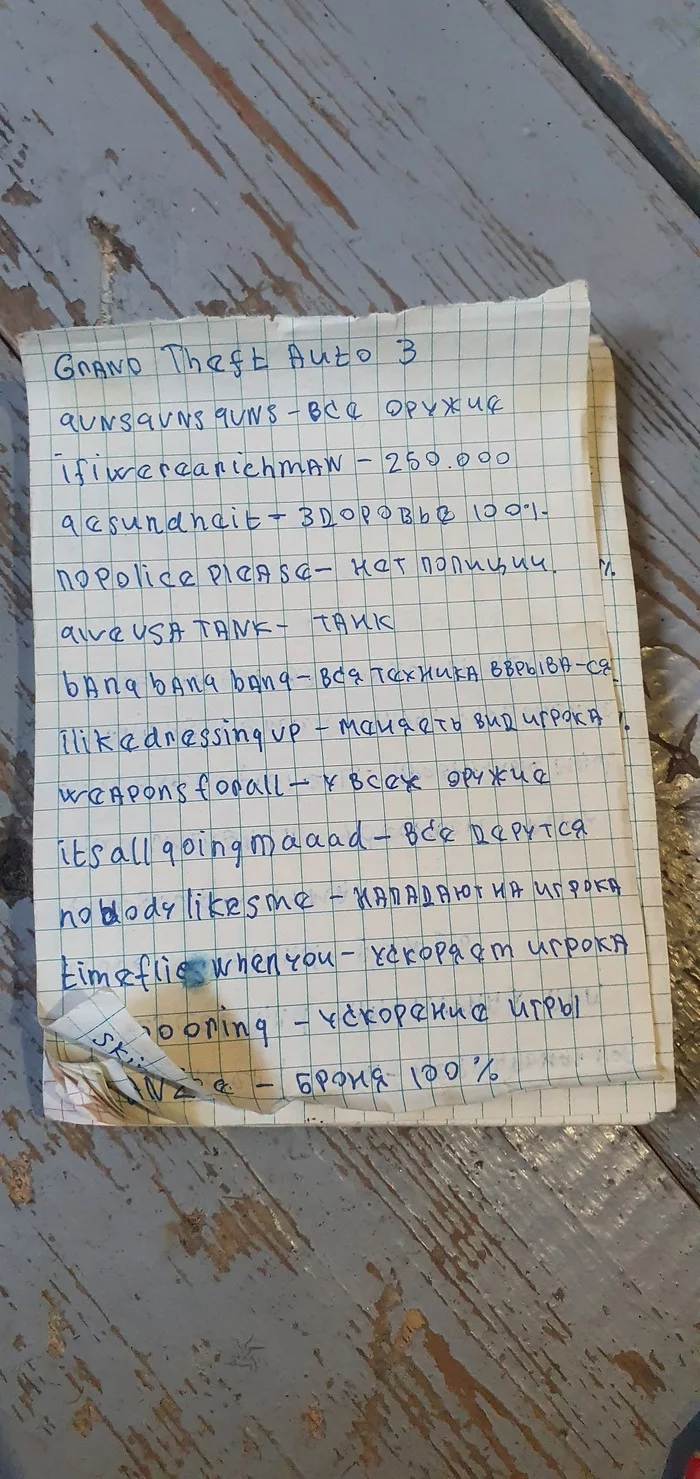 GRAND Theft Auto 3
gunsgunsguns - ВСЕ ОРУЖИЕ
ifiwerearichmAN - 250.000
gesundheit - ЗДОРОВЬЕ 100%
nopolice PleASe - НЕТ ПОЛИЦИИ
giveUSA TANK - ТАНК
bAng bAng bAng - ВСЯ ТЕХНИКА ВЗРЫВА-СЯ
ilikedressingup - МЕНЯЕТЬ ВИД ИГРОКА
weAponsforall - У ВСЕХ ОРУЖИЕ
itsallgoingmaaad - ВСЕ ДЕРУТСЯ
nobodylikesme - НАПАДАЮТ НА ИГРОКА
timeflieswhenyou - УСКОРЯЕТ ИГРОКА
ooring - УСКОРЕНИЕ ИГРЫ
ski
- БРОНЯ 100%
%